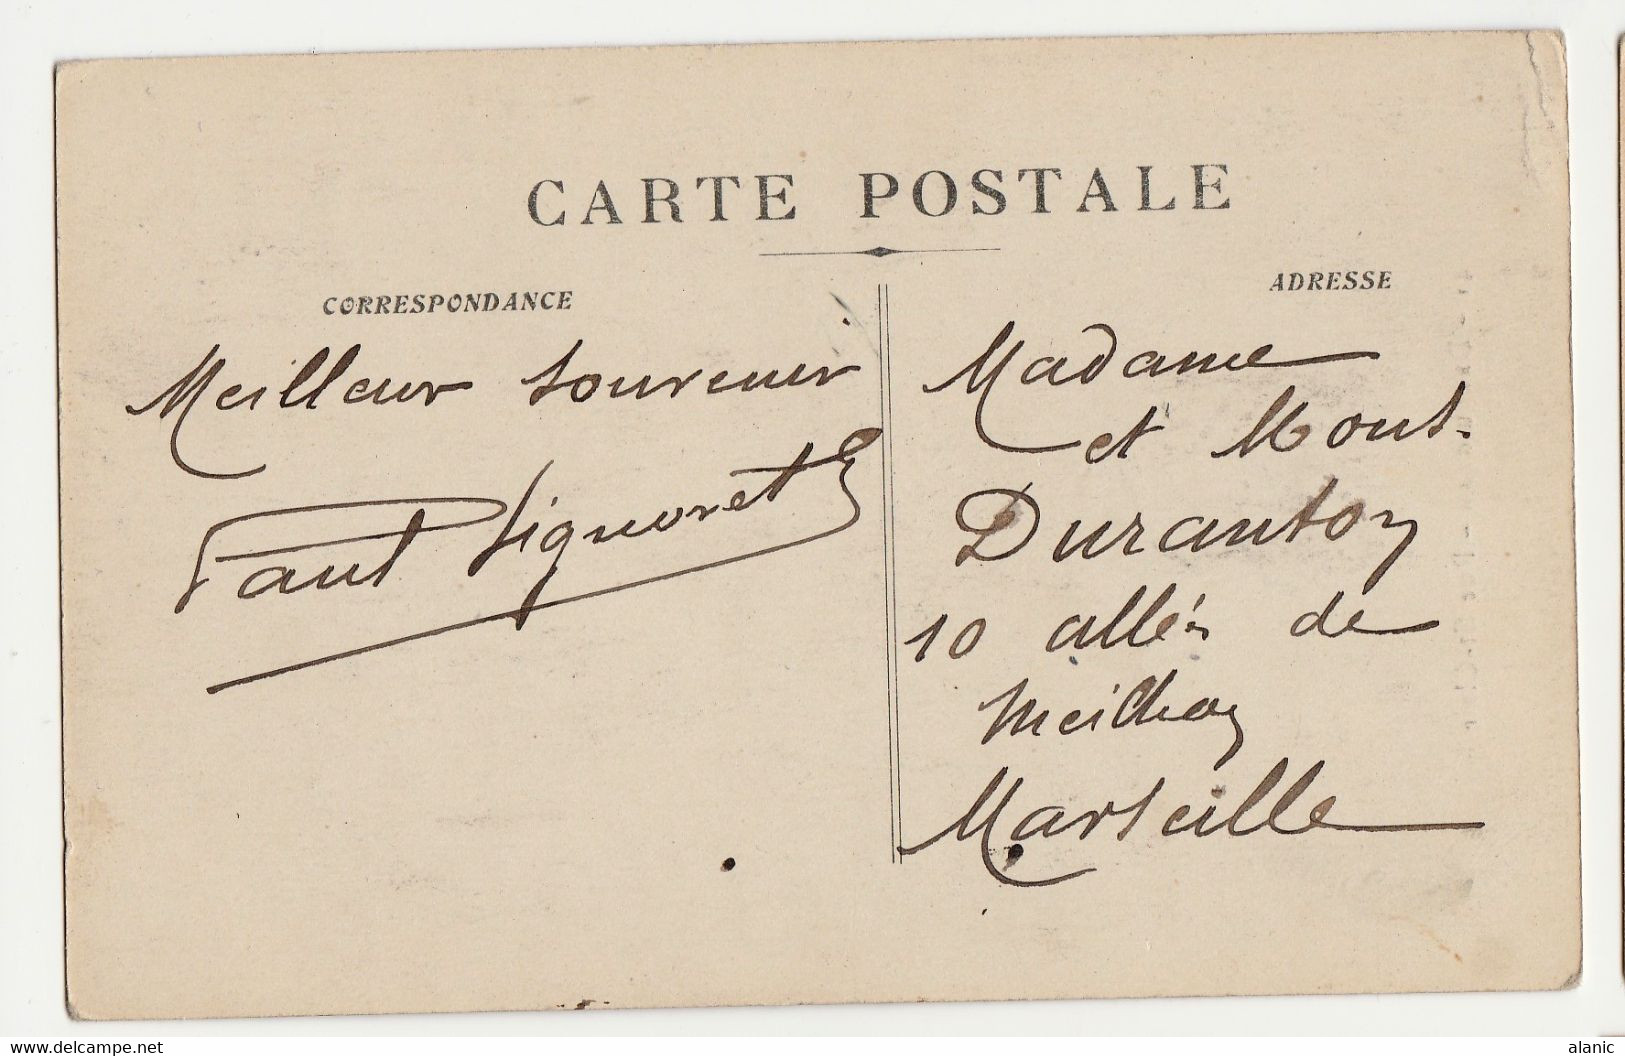 CARTE POSTALE
CORRESPONDANCE
ADRESSE
Meilleur souvenir
Paul Signoret
Madame
et Mons.
Duranton
10 allées de
Meilhan
Marseille
www.delcampe.net
alanic